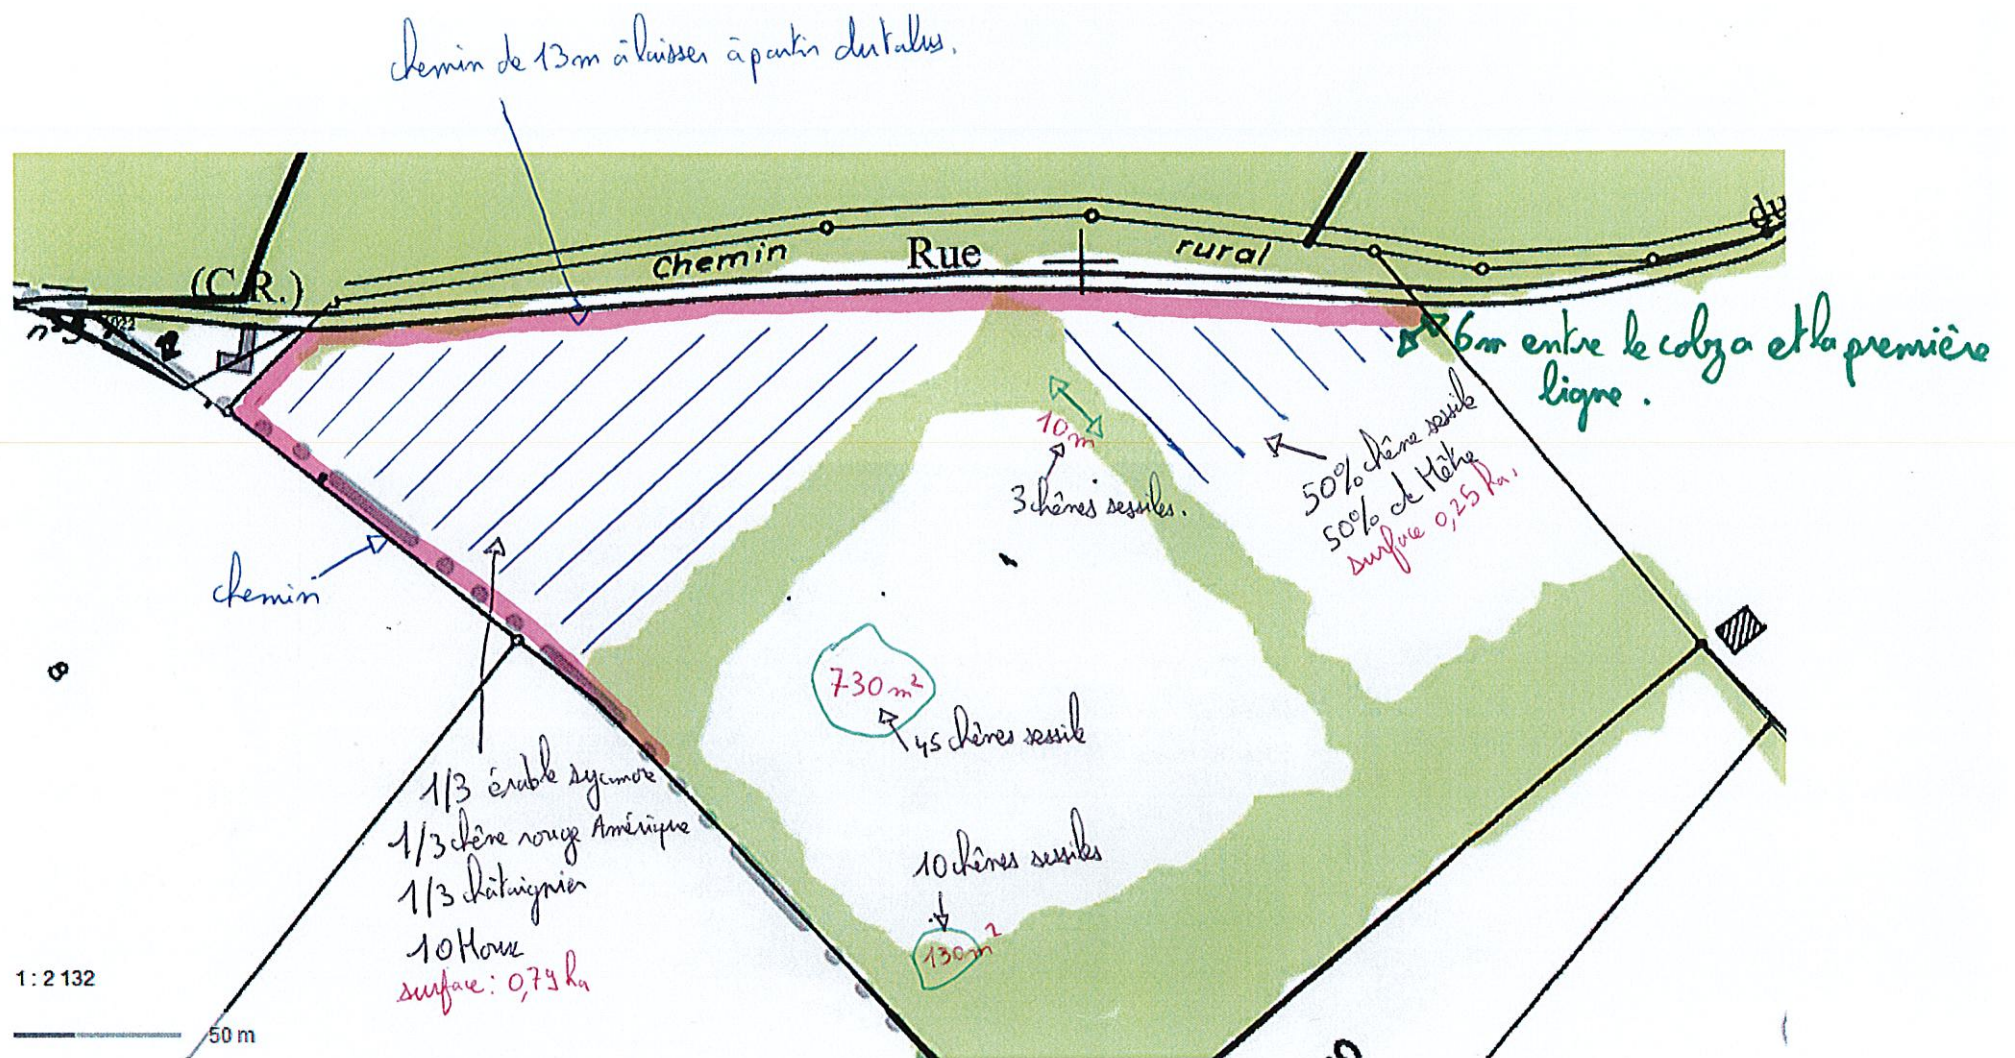 chemin de 13m à laisser à partir du talus.
(C.R.)
chemin
Rue
rural
du
6m entre le colza et la première
ligne.
10m
3 chênes sessiles.
50% chêne sessile
50% de Hêtre
surface 0,25 ha.
chemin
730 m²
45 chênes sessile
1/3 érable sycomore
1/3 chêne rouge Amérique
1/3 châtaignier
10 Houx
surface: 0,79 ha
10 chênes sessiles
130m²
1 : 2 132
50 m